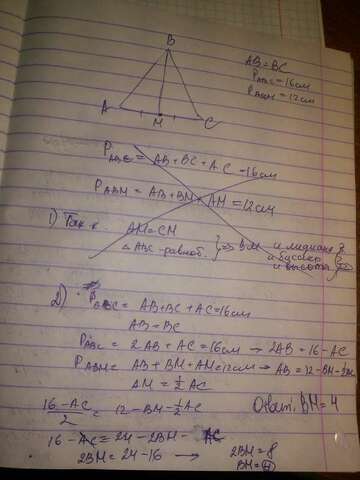 B
A
M
C
AB=BC
P_ABC=16см
P_ABM=12см
P_ABC = AB+BC+AC=16см
P_ABM = AB+BM+AM=12см
1) Так к. AM=CM
△ABC-равноб. } => BM и медиана
и биссек.
и высота
2) P_ABC = AB+BC+AC=16см
AB=BC
P_ABC = 2AB+AC=16см → 2AB=16-AC
P_ABM = AB+BM+AM=12см → AB=12-BM-½AC
AM=½AC
(16-AC)/2 = 12-BM-½AC
Ответ: BM=4
16-AC=24-2BM-AC
2BM=24-16 → 2BM=8
BM=4